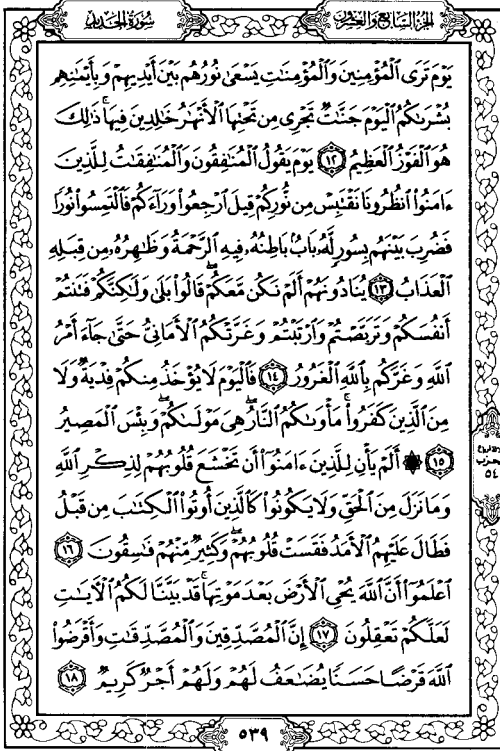 سُورَةُ الحَدِيدِ
الجُزْءُ السَّابِعُ وَالعِشْرُونَ
يَوْمَ تَرَى ٱلْمُؤْمِنِينَ وَٱلْمُؤْمِنَٰتِ يَسْعَىٰ نُورُهُم بَيْنَ أَيْدِيهِمْ وَبِأَيْمَٰنِهِم
بُشْرَىٰكُمُ ٱلْيَوْمَ جَنَّٰتٌ تَجْرِى مِن تَحْتِهَا ٱلْأَنْهَٰرُ خَٰلِدِينَ فِيهَا ۚ ذَٰلِكَ
هُوَ ٱلْفَوْزُ ٱلْعَظِيمُ ١٢ يَوْمَ يَقُولُ ٱلْمُنَٰفِقُونَ وَٱلْمُنَٰفِقَٰتُ لِلَّذِينَ
ءَامَنُوا۟ ٱنظُرُونَا نَقْتَبِسْ مِن نُّورِكُمْ قِيلَ ٱرْجِعُوا۟ وَرَآءَكُمْ فَٱلْتَمِسُوا۟ نُورًا
فَضُرِبَ بَيْنَهُم بِسُورٍ لَّهُۥ بَابٌۢ بَاطِنُهُۥ فِيهِ ٱلرَّحْمَةُ وَظَٰهِرُهُۥ مِن قِبَلِهِ
ٱلْعَذَابُ ١٣ يُنَادُونَهُمْ أَلَمْ نَكُن مَّعَكُمْ ۖ قَالُوا۟ بَلَىٰ وَلَٰكِنَّكُمْ فَتَنتُمْ
أَنفُسَكُمْ وَتَرَبَّصْتُمْ وَٱرْتَبْتُمْ وَغَرَّتْكُمُ ٱلْأَمَانِىُّ حَتَّىٰ جَآءَ أَمْرُ
ٱللَّهِ وَغَرَّكُم بِٱللَّهِ ٱلْغَرُورُ ١٤ فَٱلْيَوْمَ لَا يُؤْخَذُ مِنكُمْ فِدْيَةٌ وَلَا
مِنَ ٱلَّذِينَ كَفَرُوا۟ ۚ مَأْوَىٰكُمُ ٱلنَّارُ ۖ هِىَ مَوْلَىٰكُمْ ۖ وَبِئْسَ ٱلْمَصِيرُ
١٥ ۞ أَلَمْ يَأْنِ لِلَّذِينَ ءَامَنُوٓا۟ أَن تَخْشَعَ قُلُوبُهُمْ لِذِكْرِ ٱللَّهِ
وَمَا نَزَلَ مِنَ ٱلْحَقِّ وَلَا يَكُونُوا۟ كَٱلَّذِينَ أُوتُوا۟ ٱلْكِتَٰبَ مِن قَبْلُ
فَطَالَ عَلَيْهِمُ ٱلْأَمَدُ فَقَسَتْ قُلُوبُهُمْ ۖ وَكَثِيرٌ مِّنْهُمْ فَٰسِقُونَ ١٦
ٱعْلَمُوٓا۟ أَنَّ ٱللَّهَ يُحْىِ ٱلْأَرْضَ بَعْدَ مَوْتِهَا ۚ قَدْ بَيَّنَّا لَكُمُ ٱلْءَايَٰتِ
لَعَلَّكُمْ تَعْقِلُونَ ١٧ إِنَّ ٱلْمُصَّدِّقِينَ وَٱلْمُصَّدِّقَٰتِ وَأَقْرَضُوا۟
ٱللَّهَ قَرْضًا حَسَنًا يُضَٰعَفُ لَهُمْ وَلَهُمْ أَجْرٌ كَرِيمٌ ١٨
حزب
٥٤
٥٣٩